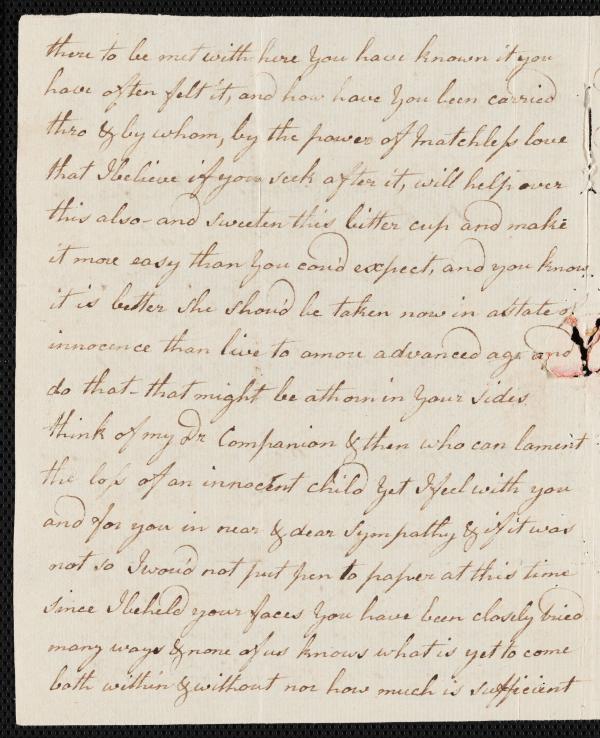 there to be met with here you have known it you
have often felt it, and how have you been carried
thro & by whom, by the power of matchless love
that I believe if you seek after it, will help over
this also - and sweeten this bitter cup and make
it more easy than you cou'd expect, and you know
it is better she shou'd be taken now in a state of
innocence than live to a more advanced age and
do that - that might be a thorn in your sides
think of my Dr Companion & then who can lament
the loss of an innocent child yet I feel with you
and for you in near & dear sympathy & if it was
not so I wou'd not put pen to paper at this time
since I beheld your faces you have been closely tried
many ways & none of us knows what is yet to come
both within & without nor how much is sufficient